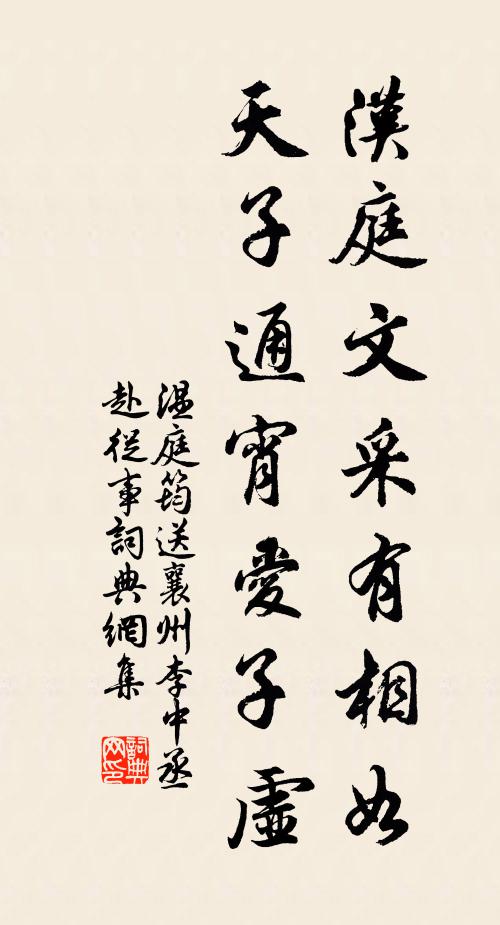 漢庭文采有相如
天子通宵愛子虛
温庭筠送襄州李中丞
赴從事詞典網集
詞典
网印